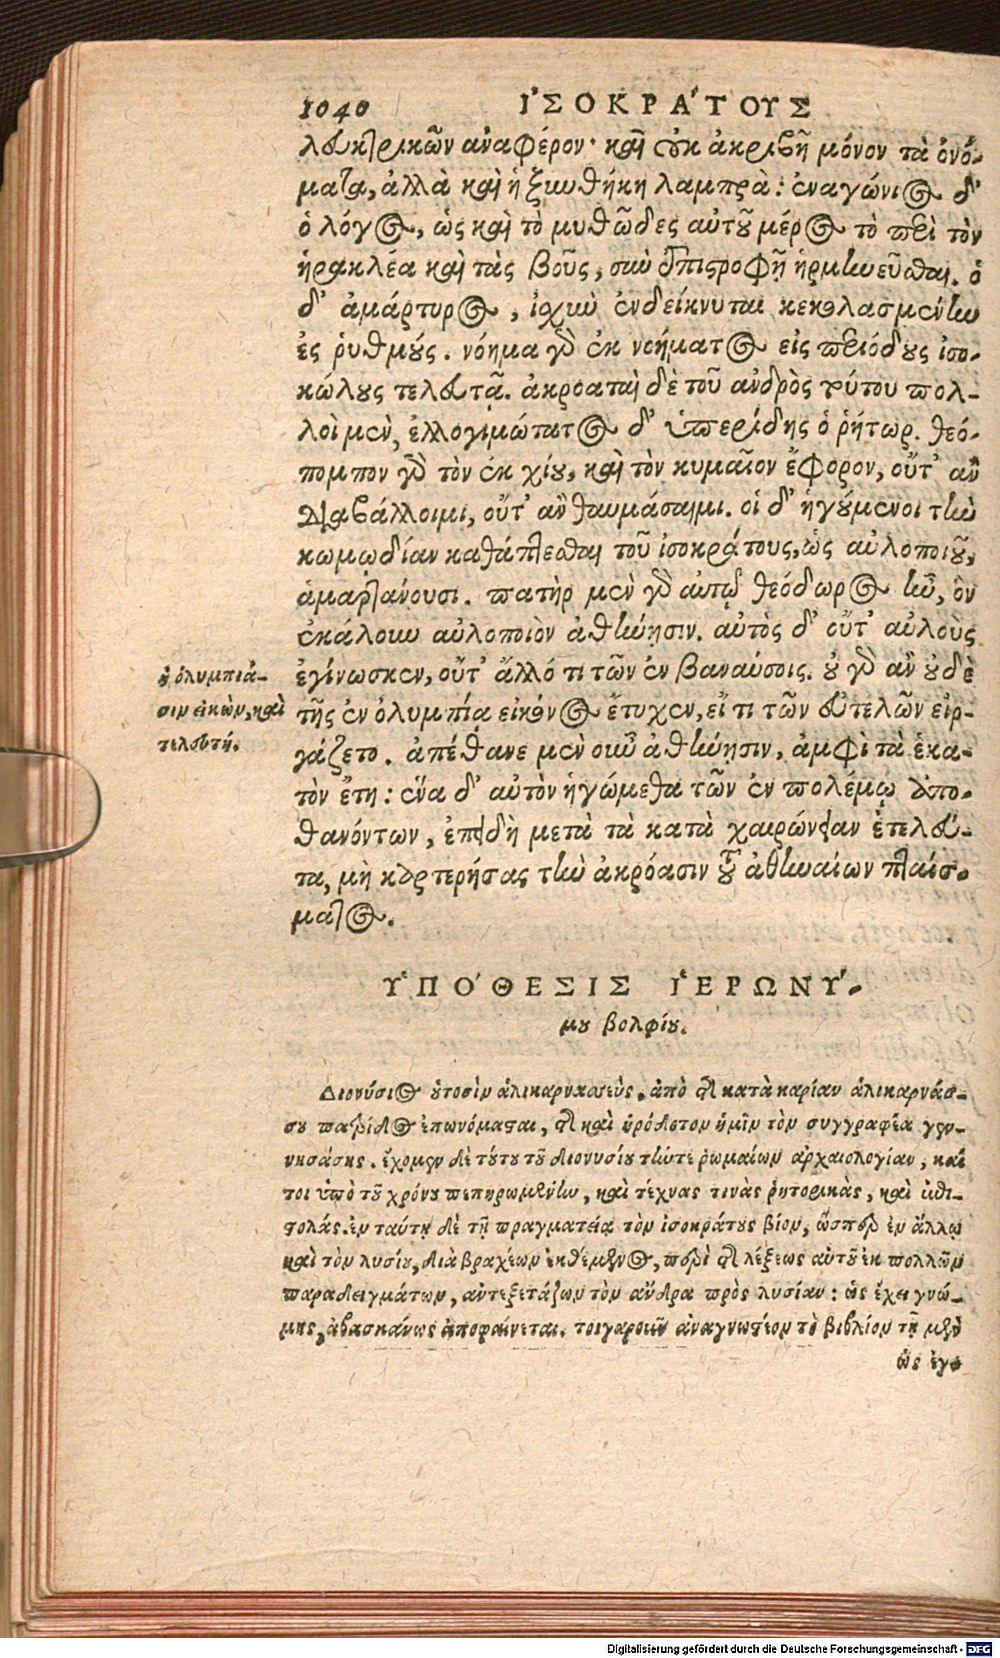 1040 ἸΣΟΚΡΆΤΟΥΣ
λευκτρικῶν ἀναφέρον· καὶ οὐκ ἀκριβῆ μόνον τὰ ὀνό-
ματα, ἀλλὰ καὶ ἡ ξυνθήκη λαμπρὰ: ἐναγώνιος δ'
ὁ λόγος, ὡς καὶ τὸ μυθῶδες αὐτοῦ μέρος τὸ περὶ τὸν
ἡρακλέα καὶ τὰς βοῦς, σὺν ἐπιστροφῇ ἡρμηνεῦσθαι. ὁ
δ' ἀμάρτυρος, ἰσχὺν ἐνδείκνυται κεκολασμένην
ἐς ῥυθμούς. νόημα γὰρ ἐκ νοήματος εἰς περιόδους ἰσο-
κώλους τελευτᾷ. ἀκροαταὶ δὲ τοῦ ἀνδρὸς τούτου πολ-
λοὶ μὲν, ἐλλογιμώτατος δ' ὑπερίδης ὁ ῥήτωρ. θεό-
πομπον γὰρ τὸν ἐκ χίου, καὶ τὸν κυμαῖον ἔφορον, οὔτ' ἂν
διαβάλλοιμι, οὔτ' ἂν θαυμάσαιμι. οἱ δ' ἡγούμενοι τὴν
κωμῳδίαν καθάπτεσθαι τοῦ ἰσοκράτους, ὡς αὐλοποιοῦ,
ἁμαρτάνουσι. πατὴρ μὲν γὰρ αὐτῷ θεόδωρος ἦν, ὃν
ἐκάλουν αὐλοποιὸν ἀθήνησιν. αὐτὸς δ' οὔτ' αὐλοὺς
ἐγίνωσκεν, οὔτ' ἄλλό τι τῶν ἐν βαναύσοις. οὐ γὰρ ἂν οὐδὲ
τῆς ἐν ὀλυμπίᾳ εἰκόνος ἔτυχεν, εἴ τι τῶν εὐτελῶν εἰρ-
γάζετο. ἀπέθανε μὲν οὖν ἀθήνησιν, ἀμφὶ τὰ ἑκα-
τὸν ἔτη: ἕνα δ' αὐτὸν ἡγώμεθα τῶν ἐν πολέμῳ ἀπο-
θανόντων, ἐπειδὴ μετὰ τὰ κατὰ χαιρώνειαν ἐτελεύ-
τα, μὴ καρτερήσας τὴν ἀκρόασιν τοῦ ἀθηναίων πταίσ-
ματος.
ἡ ὀλυμπιά-
σιν εἰκὼν, καὶ
τελευτή.
ὙΠΌΘΕΣΙΣ ἹΕΡΩΝΎ-
μου βολφίου.
Διονύσιος οὑτοσὶν ἁλικαρνασεὺς, ἀπὸ τῆς κατὰ καρίαν ἁλικαρνάσ-
σου πατρίδος ἐπωνόμασται, τῆς καὶ ἡρόδοτον ἡμῖν τὸν συγγραφέα γεν-
νησάσης. ἔχομεν δὲ τούτου τοῦ διονυσίου τήντε ῥωμαίων ἀρχαιολογίαν, καί
τοι ὑπὸ τοῦ χρόνου πεπηρωμένην, καὶ τέχνας τινὰς ῥητορικὰς, καὶ ἐπι-
στολάς. ἐν ταύτῃ δὲ τῇ πραγματείᾳ τὸν ἰσοκράτους βίον, ὥσπερ ἐν ἄλλῳ
καὶ τὸν λυσίου, διὰ βραχέων ἐκθέμενος, περὶ τῆς λέξεως αὐτοῦ ἐκ πολλῶν
παραδειγμάτων, ἀντεξετάζων τὸν ἄνδρα πρὸς λυσίαν: ὡς ἔχει γνώ-
μης, ἀβασκάνως ἀποφαίνεται. τοιγαροῦν ἀναγνωστέον τὸ βιβλίον τῇ μὲν
ὥς ἐγο
Digitalisierung gefördert durch die Deutsche Forschungsgemeinschaft - DFG